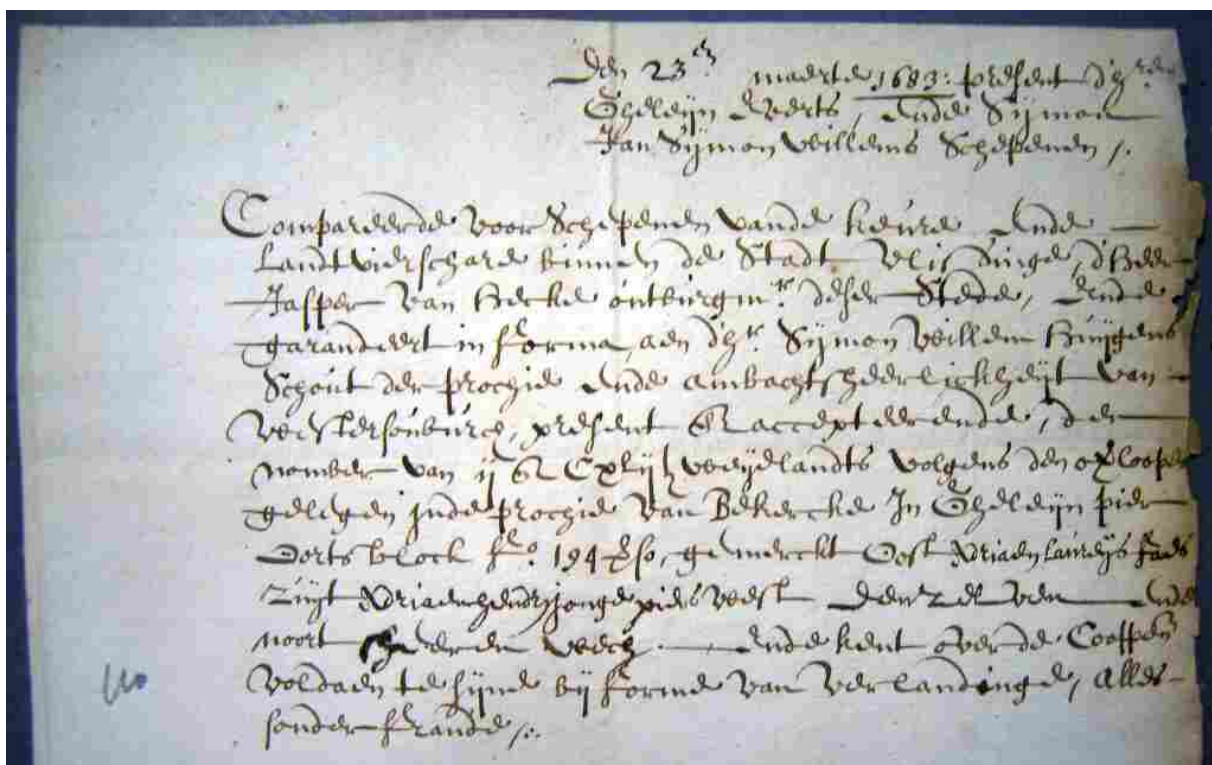 Den 23en maerte 1683: present d'hren
Gheleijn Everts, ende Sijmon
Jan Sijmon Willems Schepenen /.
Compareerde voor Schepenen vande keure ende
Landtvierschare binnen de Stadt Vlissinge, d'heer
Jasper van Hecke out burgmr. deser Stede, ende
garandeert in forma, aen d'hr. Sijmon Willem Huijgens
Schout der prochie ende ambachtsheerlickheijt van
Westersouburg, present & accepterende, den
nomber van ij weijdlandts volgens den overlooper
gelegen inde prochie van Bekercke In Gheleijn pier
Oorts block fo. 194 gemerckt Oost Adriaen Laureijs
Zuijt Adriaen jonge piers west den selven ende
noort heeren wech. ende kent over de Cooppen
voldaen te sijne bij forme van verlandinge, alles
sonder fraude /.